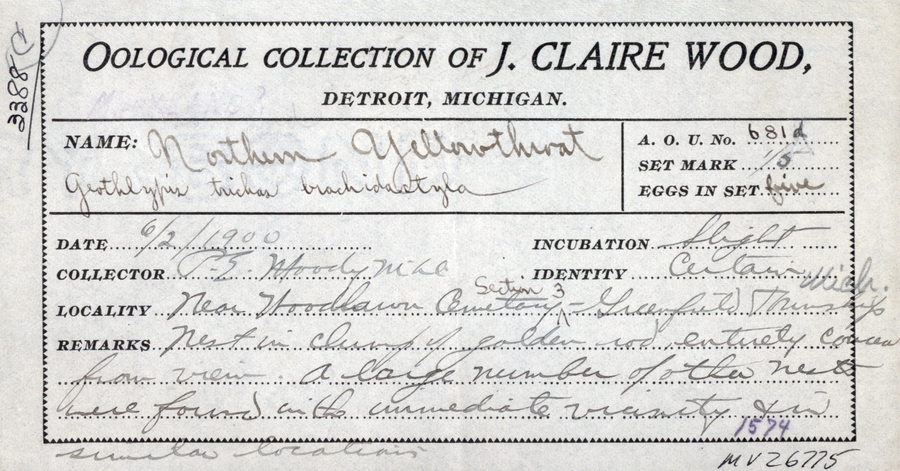 3388
OOLOGICAL COLLECTION OF J. CLAIRE WOOD,
DETROIT, MICHIGAN.
NAME: Northern Yellowthroat
Geothlypis trichas brachidactyla
A. O. U. No. 681d
SET MARK 1/5
EGGS IN SET five
DATE 6/2/1900
INCUBATION Slight
COLLECTOR P. E. Moody
IDENTITY Certain
Mich.
Section 3
LOCALITY Near Woodlawn Cemetary - Greenfield Township
REMARKS Nest in clump of golden rod entirely
from view. A large number of other nests
were found in the immediate vicinity & in
1574
similar locations
MV26775